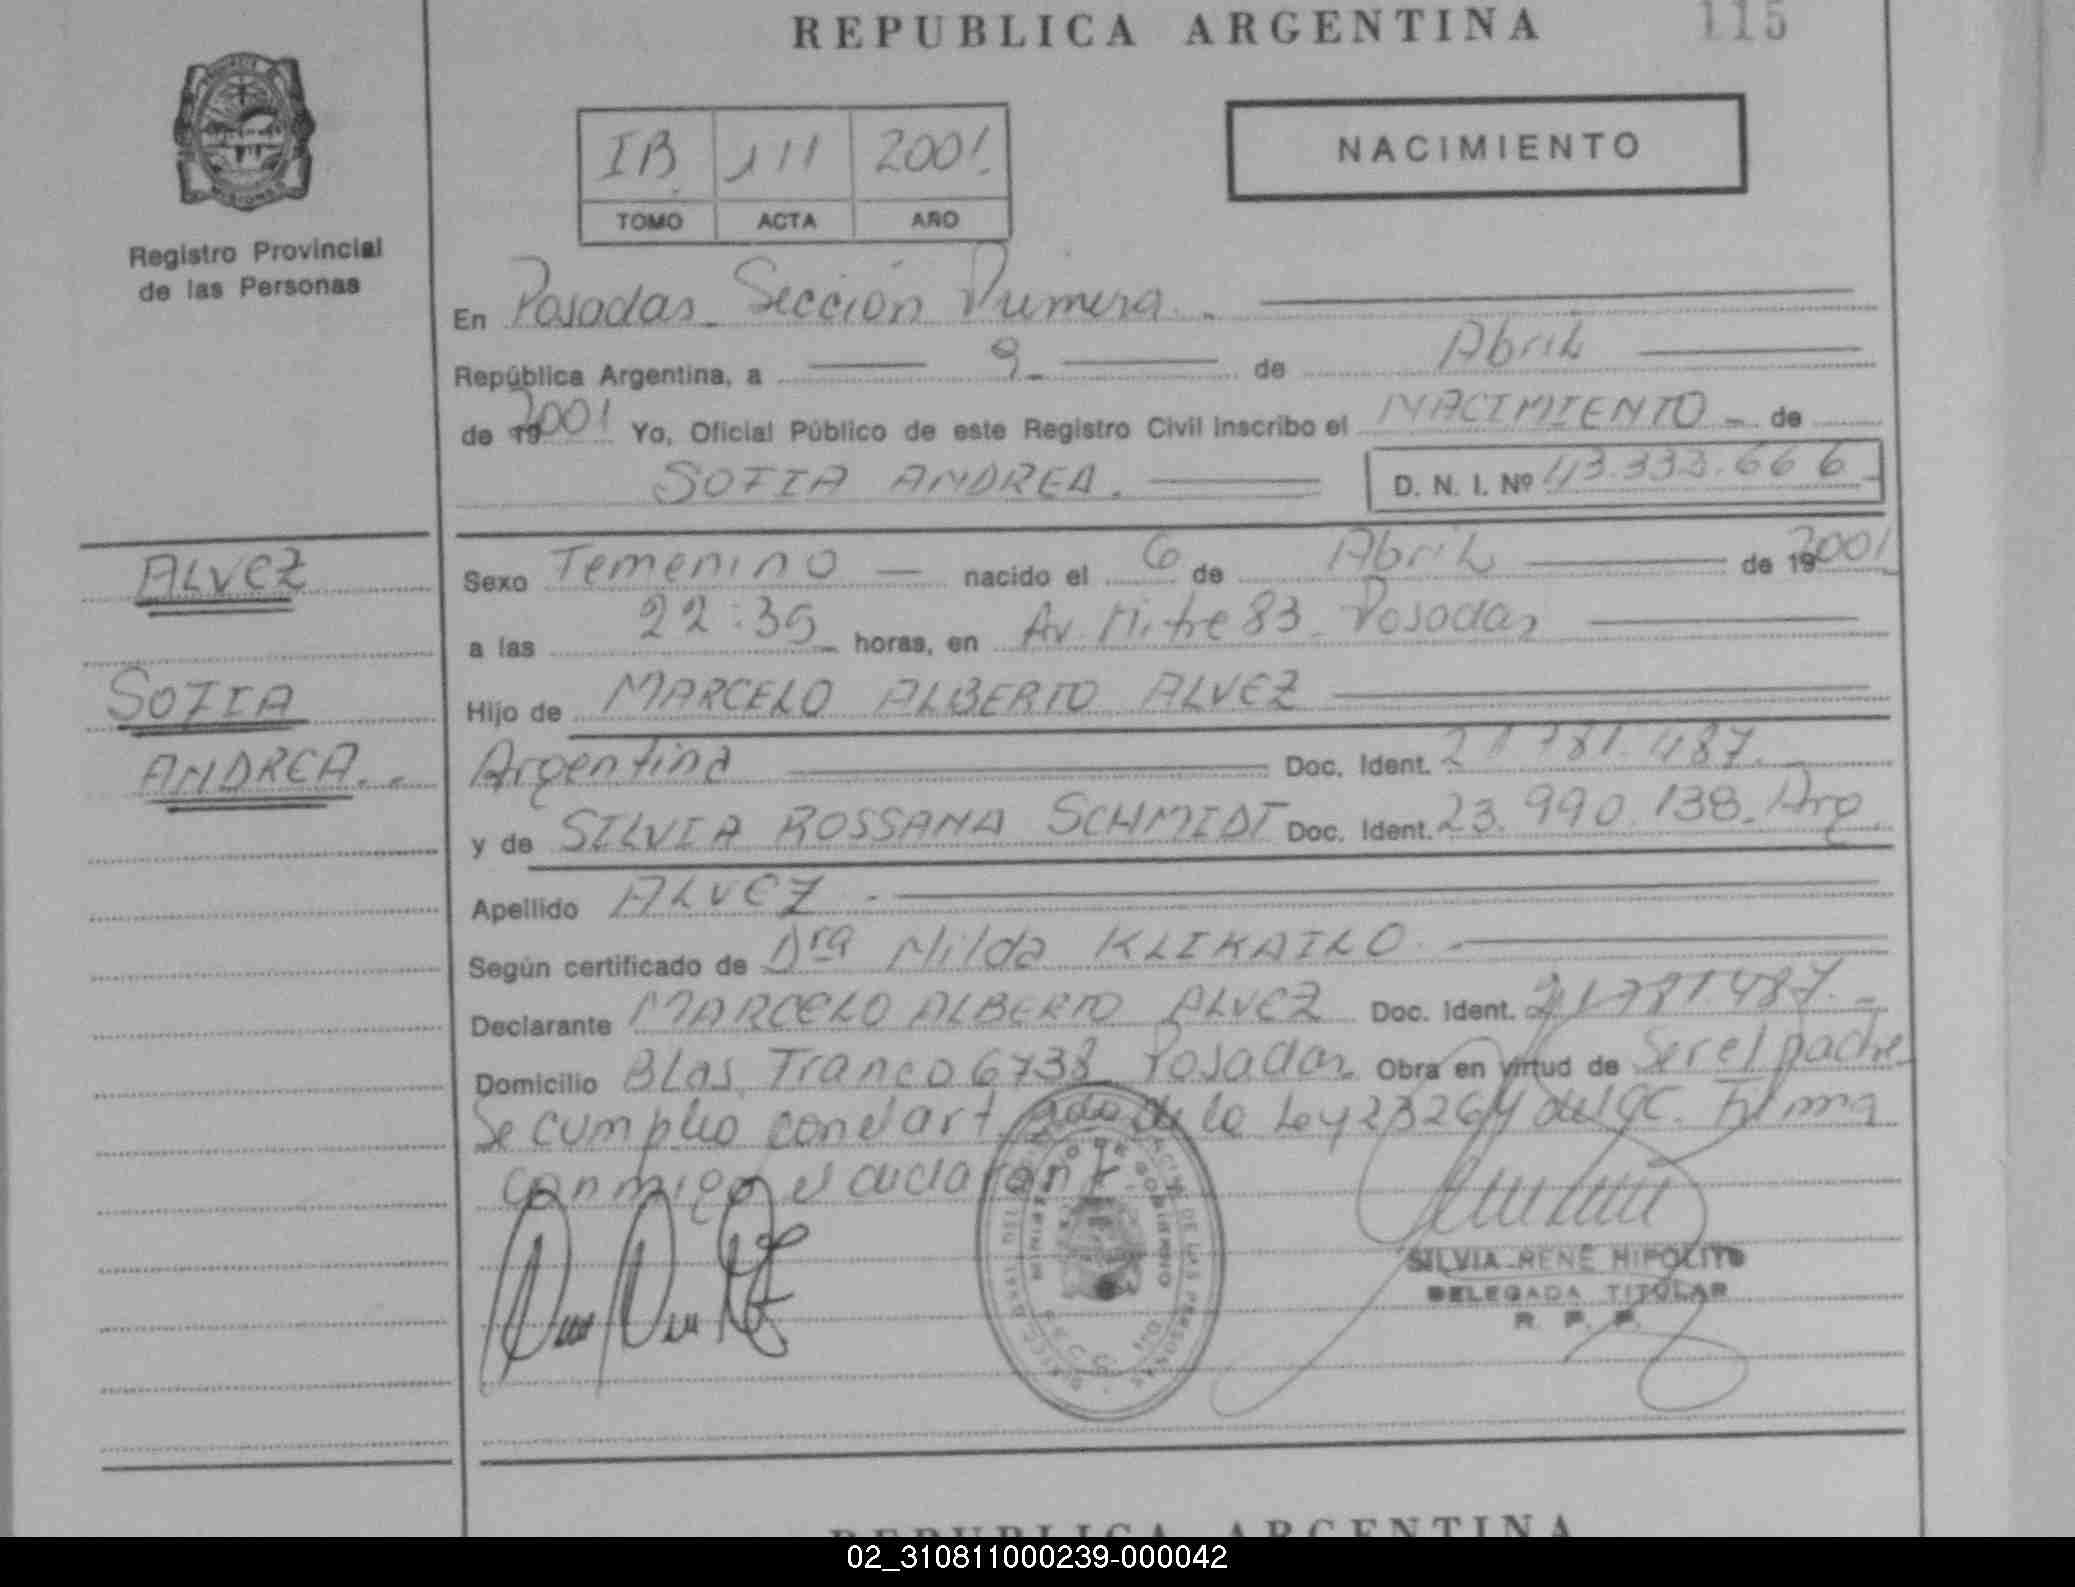 REPUBLICA ARGENTINA 115
IB 111 2001.
TOMO ACTA AÑO
NACIMIENTO
Registro Provincial
de las Personas
En Posadas Sección Primera.
República Argentina, a 9 de Abril
de 19 2001 Yo, Oficial Público de este Registro Civil inscribo el NACIMIENTO de
SOFIA ANDREA. D. N. I. Nº 43.333.666
ALVEZ
SOFIA
ANDREA
Sexo Femenino nacido el 6 de Abril de 19 2001
a las 22:35 horas, en Av. Mitre 83 Posadas
Hijo de MARCELO ALBERTO ALVEZ
Argentina Doc. Ident. 21.781.487.
y de SILVIA ROSSANA SCHMIDT Doc. Ident. 23.990.138. Arg.
Apellido ALVEZ
Según certificado de Dra Nilda KLIKAILO
Declarante MARCELO ALBERTO ALVEZ Doc. Ident. 21.781.487.
Domicilio Blas Franco 6738 Posadas Obra en virtud de Ser el padre
Se cumplio con el art de la Ley 23264 del CC. Firma
conmigo el declarante
MINISTERIO DE GOBIERNO
SILVIA RENE HIPOLITO
DELEGADA TITULAR
R. P. P.
REPUBLICA ARGENTINA
02_310811000239-000042